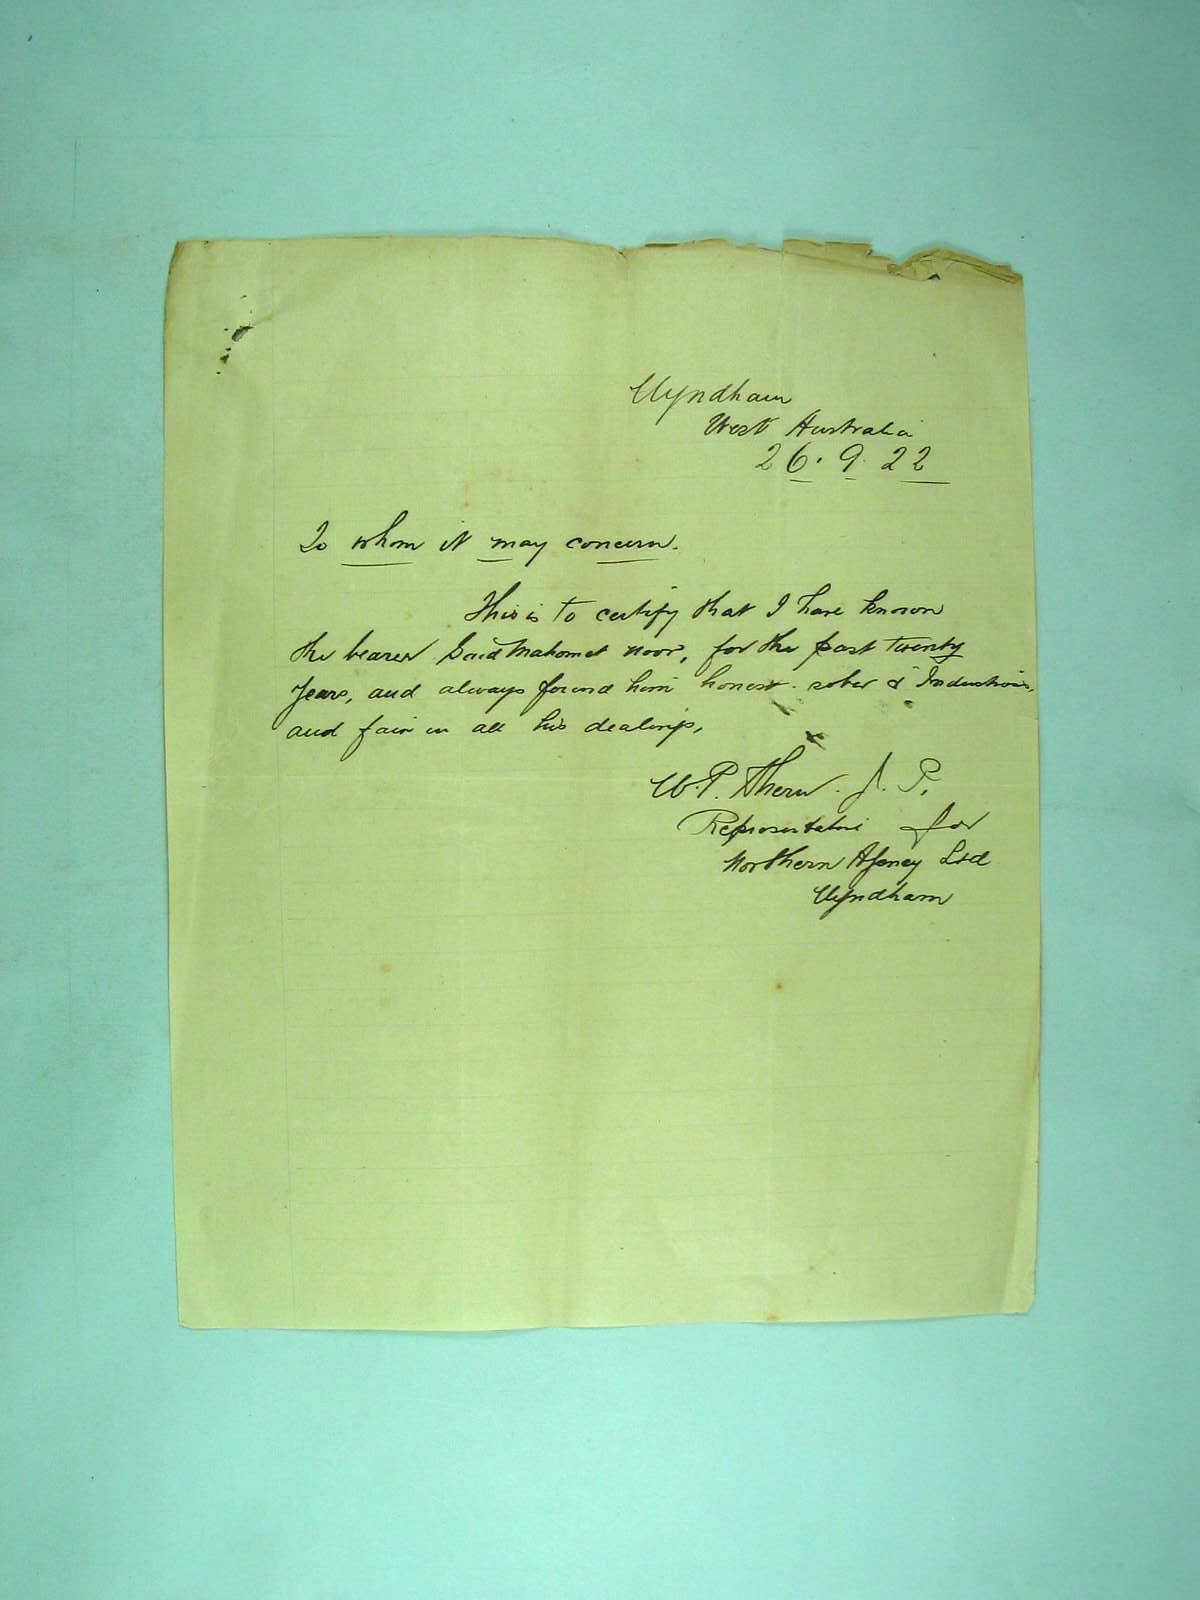 Wyndham
West Australia
26. 9. 22
To whom it may concern.
This is to certify that I have known
the bearer Said Mahomet Noor, for the past twenty
years, and always found him honest. sober & Industrious,
and fair in all his dealings,
W. P. J. P.
Representative for
Northern Agency Ltd
Wyndham